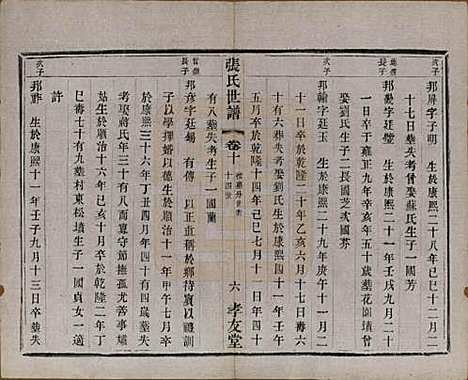 次子
邦屏字子明　生於康熙二十八年己巳十二月二
十七日墓失考娶蘇氏生子一國芳
長子
邦畿字廷璧　生於康熙二十一年壬戌九月二十
一日卒于雍正九年辛亥年五十葬墓花園墳曾
娶劉氏生子二長國芝次國芥
次子
邦翰字廷玉　生於康熙二十九年庚午十一月二
十一日卒於乾隆二十年乙亥六月十七日壽六
十有六葬失考娶劉氏生於康熙四十一年壬午
五月卒於乾隆十四年己巳七月十一日年四十
有八葬失考生子一國蘭
張氏世譜
卷十
十四世
六
孝友堂
長子
邦彥字冠場　有傳　以正重稱於鄉訓
子以學擇婿以德生於順治十一年甲午七月卒
於康熙三十六年丁丑四月年四十有四葬墓失
考娶蔣氏年三十三有八而寡守節撫孤尤善事孀
姑生於順治十六年己亥十月卒於乾隆二年丁
巳壽七十有九葬村東松墳生子一國貞女一適
許
次子
邦祚　生於康熙十一年壬子九月十三日卒墓失